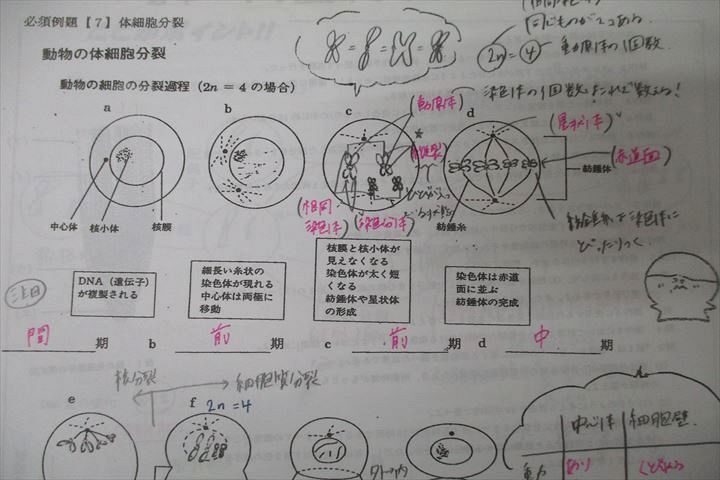 必須例題【7】体細胞分裂
同じものが2つある。
2n=4 動原体の個数。
動物の体細胞分裂
動物の細胞の分裂過程(2n=4の場合)
染色体の個数はこれで数える!
a
b
c
d
(動原体)
(星状体)
(赤道面)
中心体
核小体
核膜
紡錘糸
紡錘体
(相同染色体)
(染色分体)
紡錘糸が染色体にぴったりつく。
DNA(遺伝子)
が複製される
細長い糸状の
染色体が現れる
中心体は両極に
移動
核膜と核小体が
見えなくなる
染色体が太く短
くなる
紡錘体や星状体
の形成
染色体は赤道
面に並ぶ
紡錘体の完成
間期
b 前期
c 前期
d 中期
核分裂
細胞質分裂
e
f
2n=4
中心体
細胞壁
動
あり